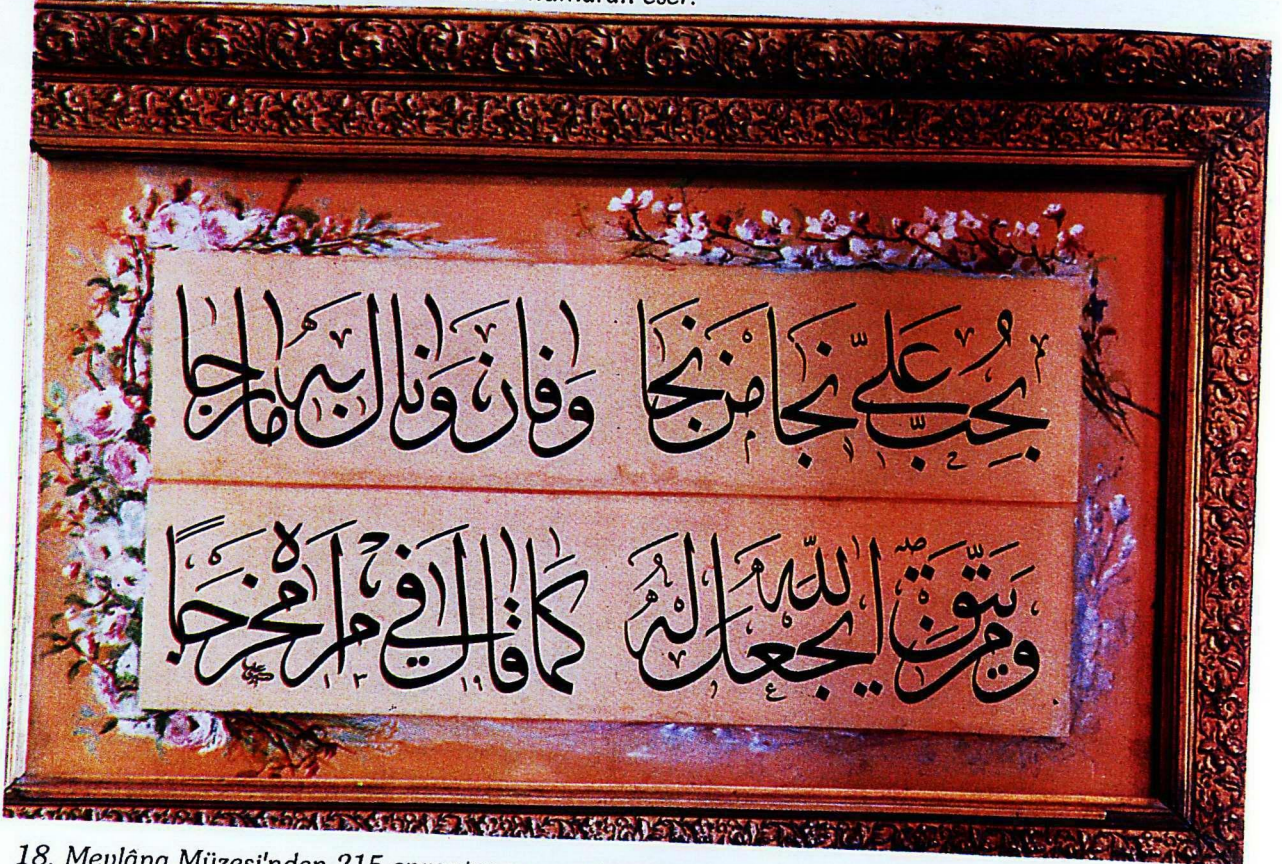 eser.
بِحُبِّ عَلِيٍّ نَجَا مَنْ نَجَا وَفَازَ وَنَالَ بِهِ مَا رَجَا
وَمَنْ يَتَّقِ اللّٰهَ يَجْعَلْ لَهُ كَمَا قَالَ فِي اَمْرِهِ مَخْرَجًا
١٣١٩
18. Mevlâna Müzesi'nden 215